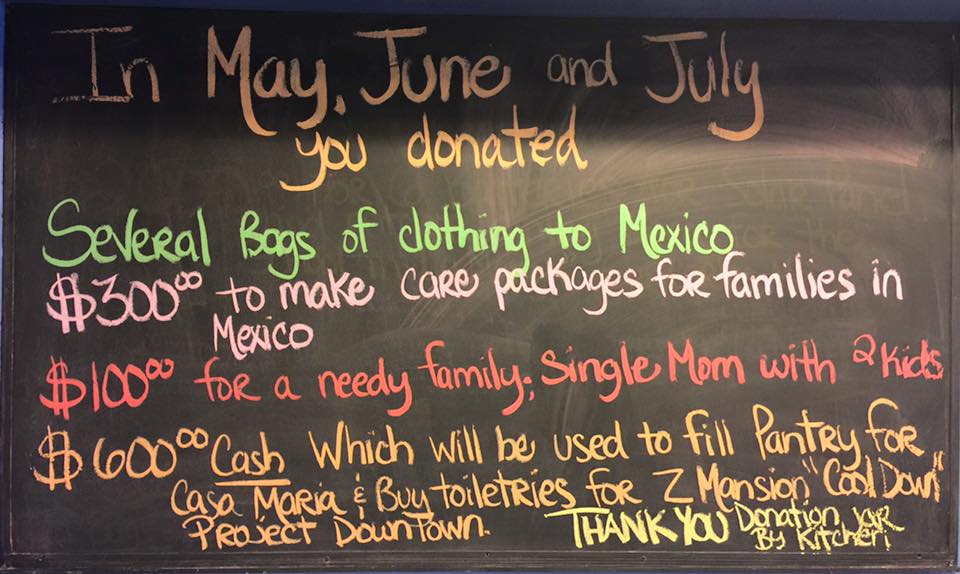 In May, June and July
you donated
Several Bags of clothing to Mexico
$300⁰⁰ to make care packages for families in
Mexico
$100⁰⁰ for a needy family; Single Mom with 2 kids
$600⁰⁰ Cash Which will be used to fill Pantry for
Casa Maria & Buy toiletries for Z Mansion "Cool Down"
Project DownTown.
THANK YOU
Donation Jar
By Kitchen